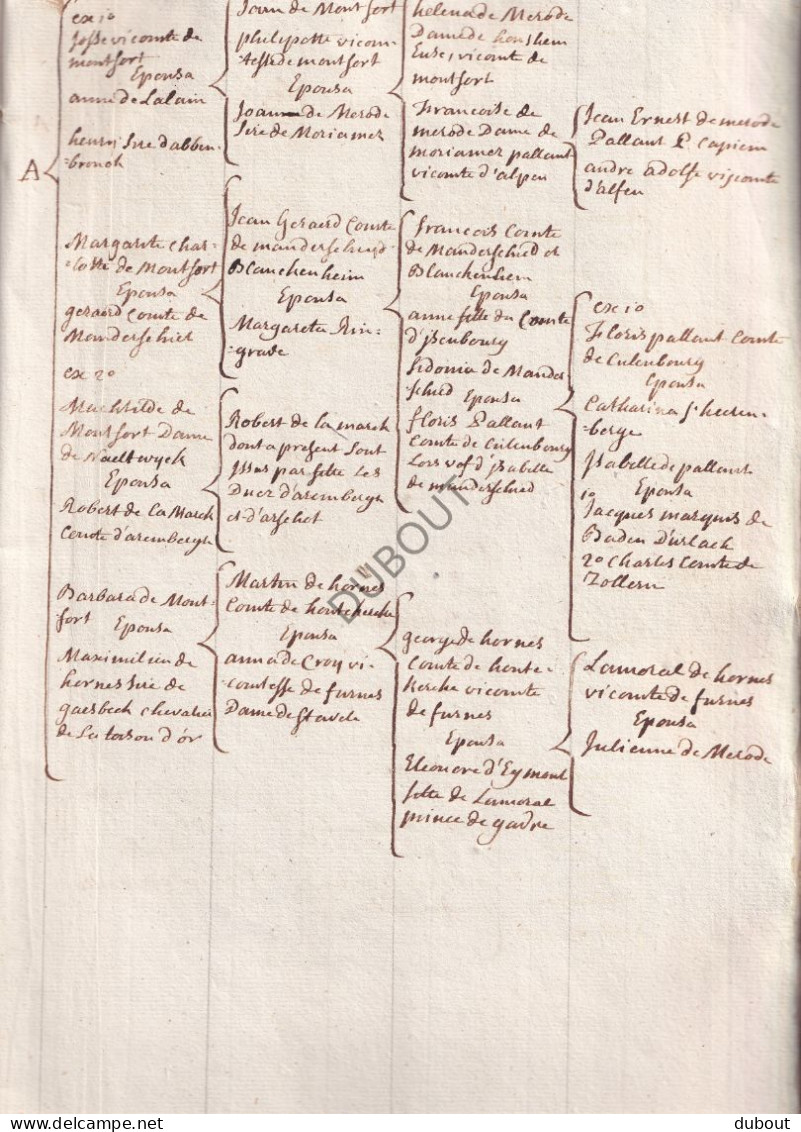 A
ex 1o
Josse vicomte de
montfort
Eponsa
anne de Lalain
henry sire d'abben-
-brouck
Margarite char-
-lotte de Montfort
Eponsa
gerard Comte de
Manderschiet
ex 2o
Machtilde de
Montfort Dame
de Naeltwyck
Eponsa
Robert de La Marck
Comte d'arembergh
Barbara de Mont-
fort
Eponsa
Maximilien de
hornes sire de
gaesbeck chevalier
de La toison d'or
Joan de Montfort
philipotte vicom-
-tesse de montfort
Eponsa
Joan de Merode
Sire de Moriamez
Jean Gerard Comte
de manderscheyd-
Blanckenheim
Eponsa
Margareta Rin-
-grade
Robert de la marck
dont a present sont
Issus par fille Les
Ducz d'arembergh
et d'arschot
Martin de hornes
Comte de houtekercke
Eponsa
anna de Croy vi-
-comtesse de furnes
Dame de Stavele
helena de Merode
Dame de
vicomte de
montfort
Francoise de
merode Dame de
moriamez pallant
vicomte d'alpen
Francois Comte
de Manderschied et
Blanckenhem
Eponsa
anne fille du Comte
d'ysenbourg
Sidonia de Mander
schied Eponsa
floris Pallant
Comte de Culenbourg
Lors vef d'ysabelle
de manderschied
george de hornes
Comte de houte-
kercke vicomte
de furnes
Eponsa
Eleonore d'Eymont
fille de Lamoral
prince de gavre
Jean Ernest de merode
Pallant
andre adolfe viscomte
d'alfen
ex 1o
Floris pallant Comte
de Culenbourg
Eponsa
Catharina s'heeren-
-berge
Isabelle de pallant
Eponsa
1o
Jacques marquis de
Baden Durlach
2o Charles Comte de
Zollern
Lamoral de hornes
vicomte de furnes
Eponsa
Julienne de Merode
DUBOUT
delcampe.net
dubout